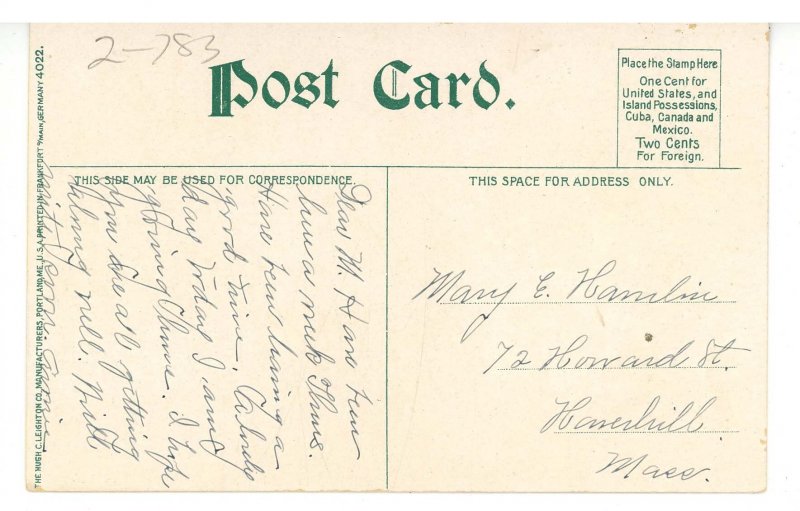 2-783
Post Card.
Place the Stamp Here
One Cent for
United States, and
Island Possessions,
Cuba, Canada and
Mexico.
Two Cents
For Foreign.
THIS SIDE MAY BE USED FOR CORRESPONDENCE
THIS SPACE FOR ADDRESS ONLY.
THE HUGH C. LEIGHTON CO., MANUFACTURERS, PORTLAND, ME., U.S.A. PRINTED IN FRANKFORT o/MAIN, GERMANY 4022.
Dear M. Have been
here a week Thurs.
Have been having a
good time.
day today I am
going home. I hope
you are all getting
along well. Will
write soon.
Mary E. Hamlin
72 Howard St.
Haverhill
Mass.